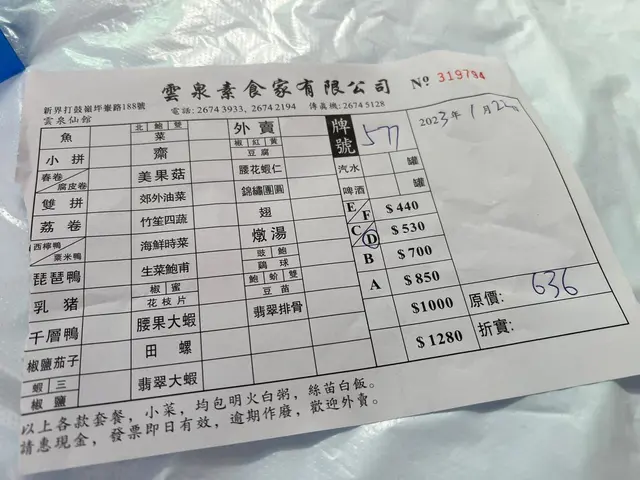 雲泉素食家有限公司
No 319794
新界打鼓嶺坪輋路188號
電話: 2674 3933, 2674 2194 傳真機: 2674 5128
雲泉仙館
2023年1月22日
牌號 577
魚
北菜 鮑菜 雙菜
外賣
小拼
齋
椒 紅 黃
豆腐
汽水 罐
春卷
腐皮卷
美果菇
腰花蝦仁
啤酒 罐
雙拼
郊外油菜
錦繡團圓
E/F $440
荔卷
竹笙四蔬
翅
C/D $530
西檸鴨
粟米鴨
海鮮時菜
燉湯
B $700
琵琶鴨
生菜鮑甫
豉 鮑
鷄球
A $850
乳豬
椒 蜜
花枝片
鮑 蚧 雙
豆苗
$1000
原價: 636
千層鴨
腰果大蝦
翡翠排骨
$1280
折實:
椒鹽茄子
田螺
蝦 三
椒鹽
翡翠大蝦
以上各款套餐，小菜，均包明火白粥，絲苗白飯。
請惠現金，發票即日有效，逾期作廢，歡迎外賣。